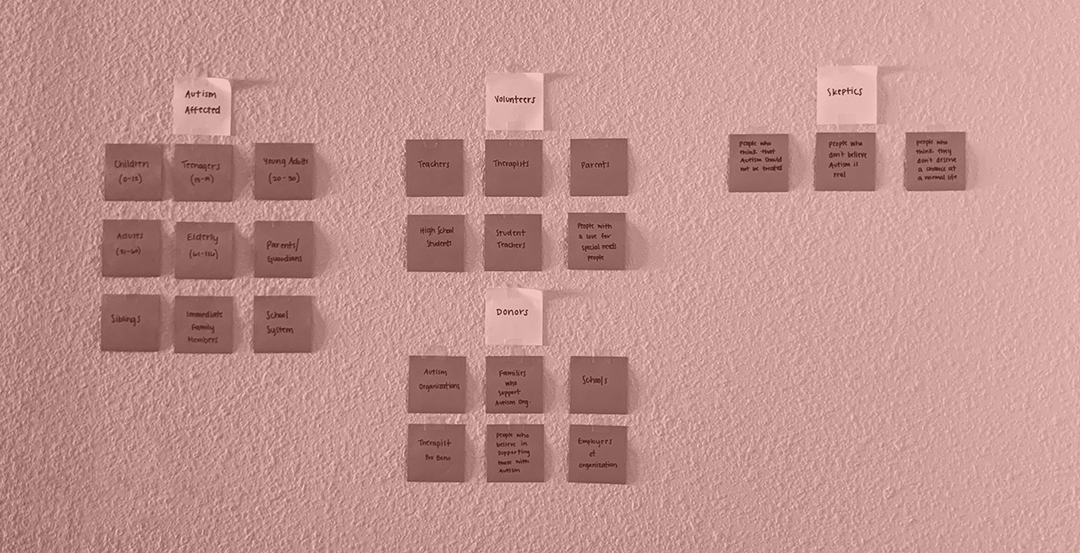 Autism
Affected
Children
(0-12)
Teenagers
(13-19)
Young Adults
(20-30)
Adults
(31-60)
Elderly
Parents/
Guardians
Siblings
Immediate
Family
Members
School
System
Volunteers
Teachers
Therapists
Parents
High School
Students
Student
Teachers
People with
a love for
special needs
people
Donors
Autism
Organizations
Families
who
support
Autism Org.
Schools
Therapist
Pro Bono
People who
believe in
supporting
those with
autism
Employees
of
organization
Skeptics
People who
think that
Autism should
not be treated
People who
don't believe
Autism is
real
People who
think they
don't deserve
a chance at
a normal life